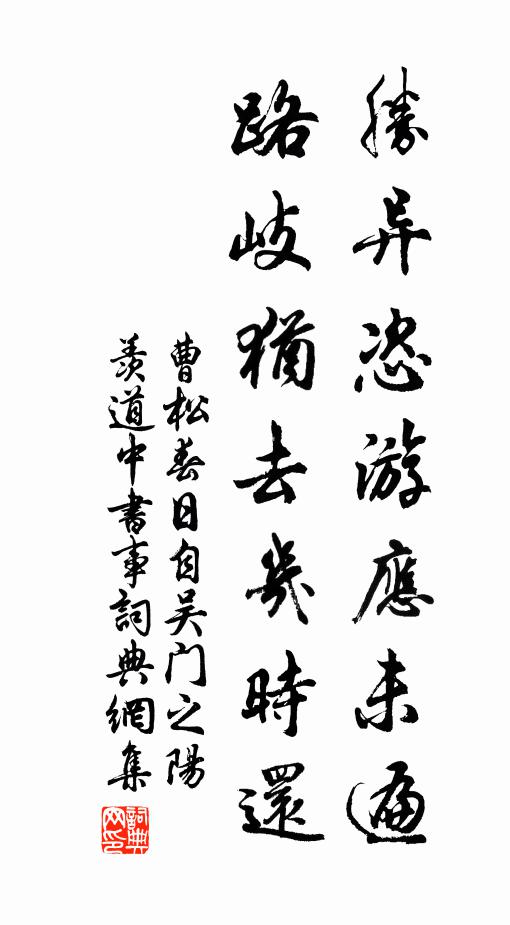 勝异恣游應未遍
路岐猶去幾時還
曹松春日自吴门之陽
羨道中書事詞典網集
詞典
网印